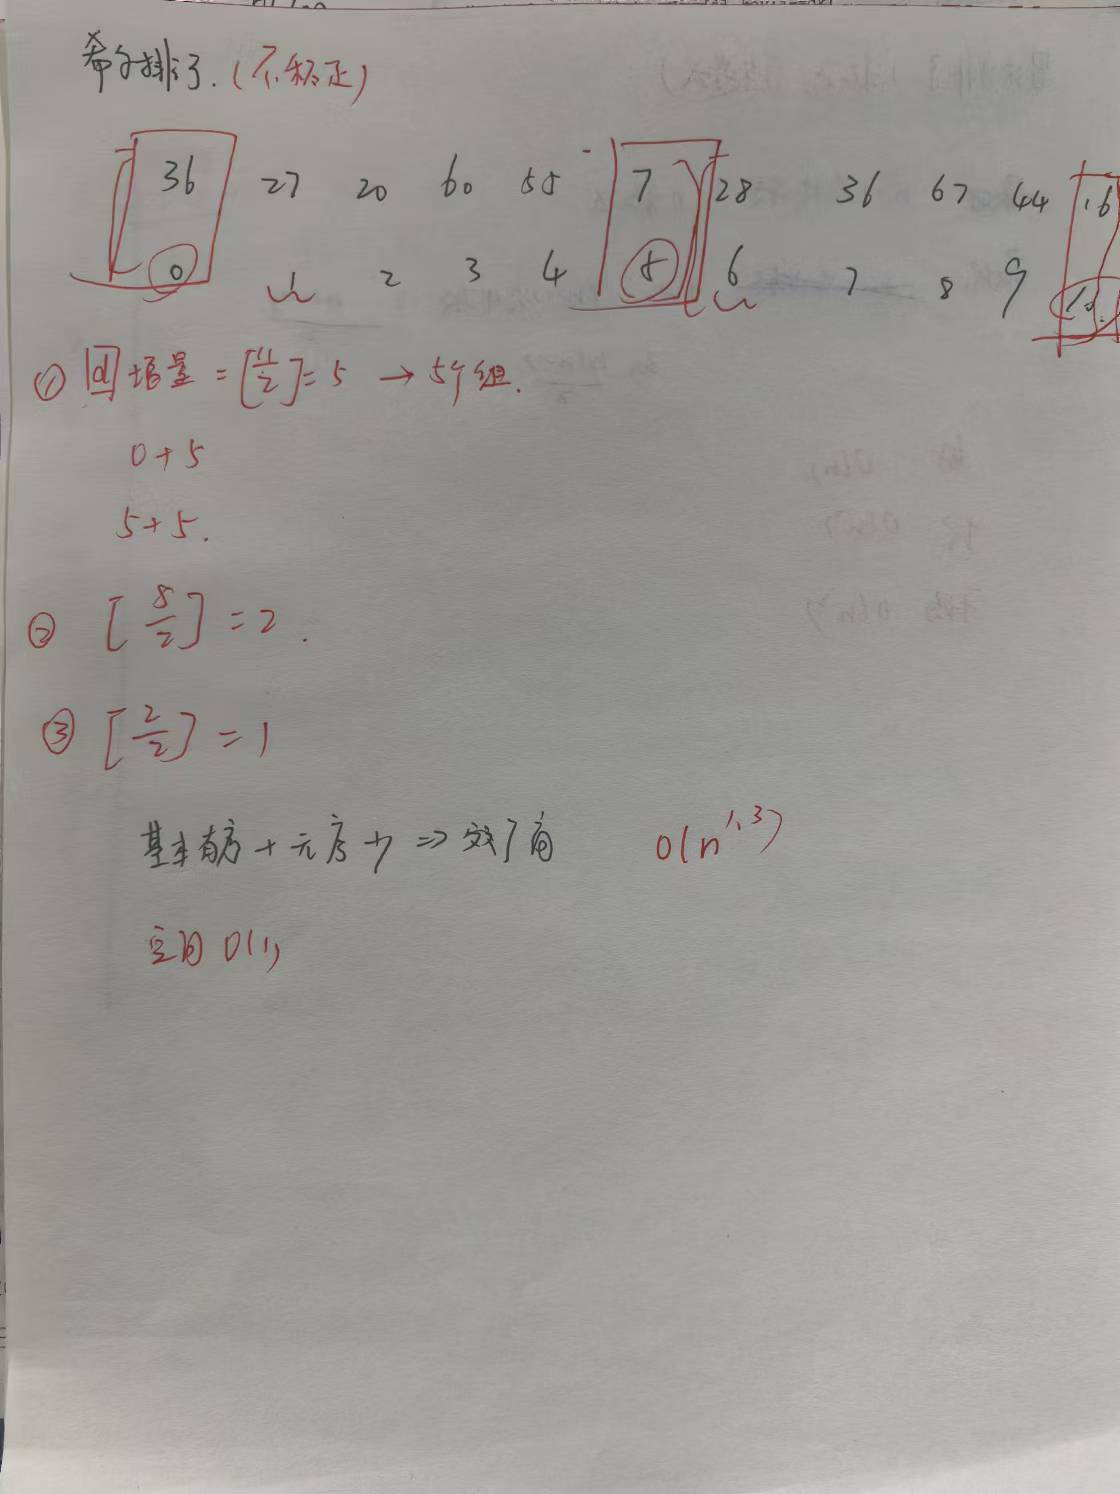 希尔排序.(不稳定)
36 27 20 60 55 7 28 36 67 44 16
0 1 2 3 4 5 6 7 8 9 10
① d 增量 = [11/2] = 5 → 5个组.
0+5
5+5.
② [5/2] = 2.
③ [2/2] = 1
基本有序 + 元素少 => 效率高 O(n^1.3)
空间 O(1)